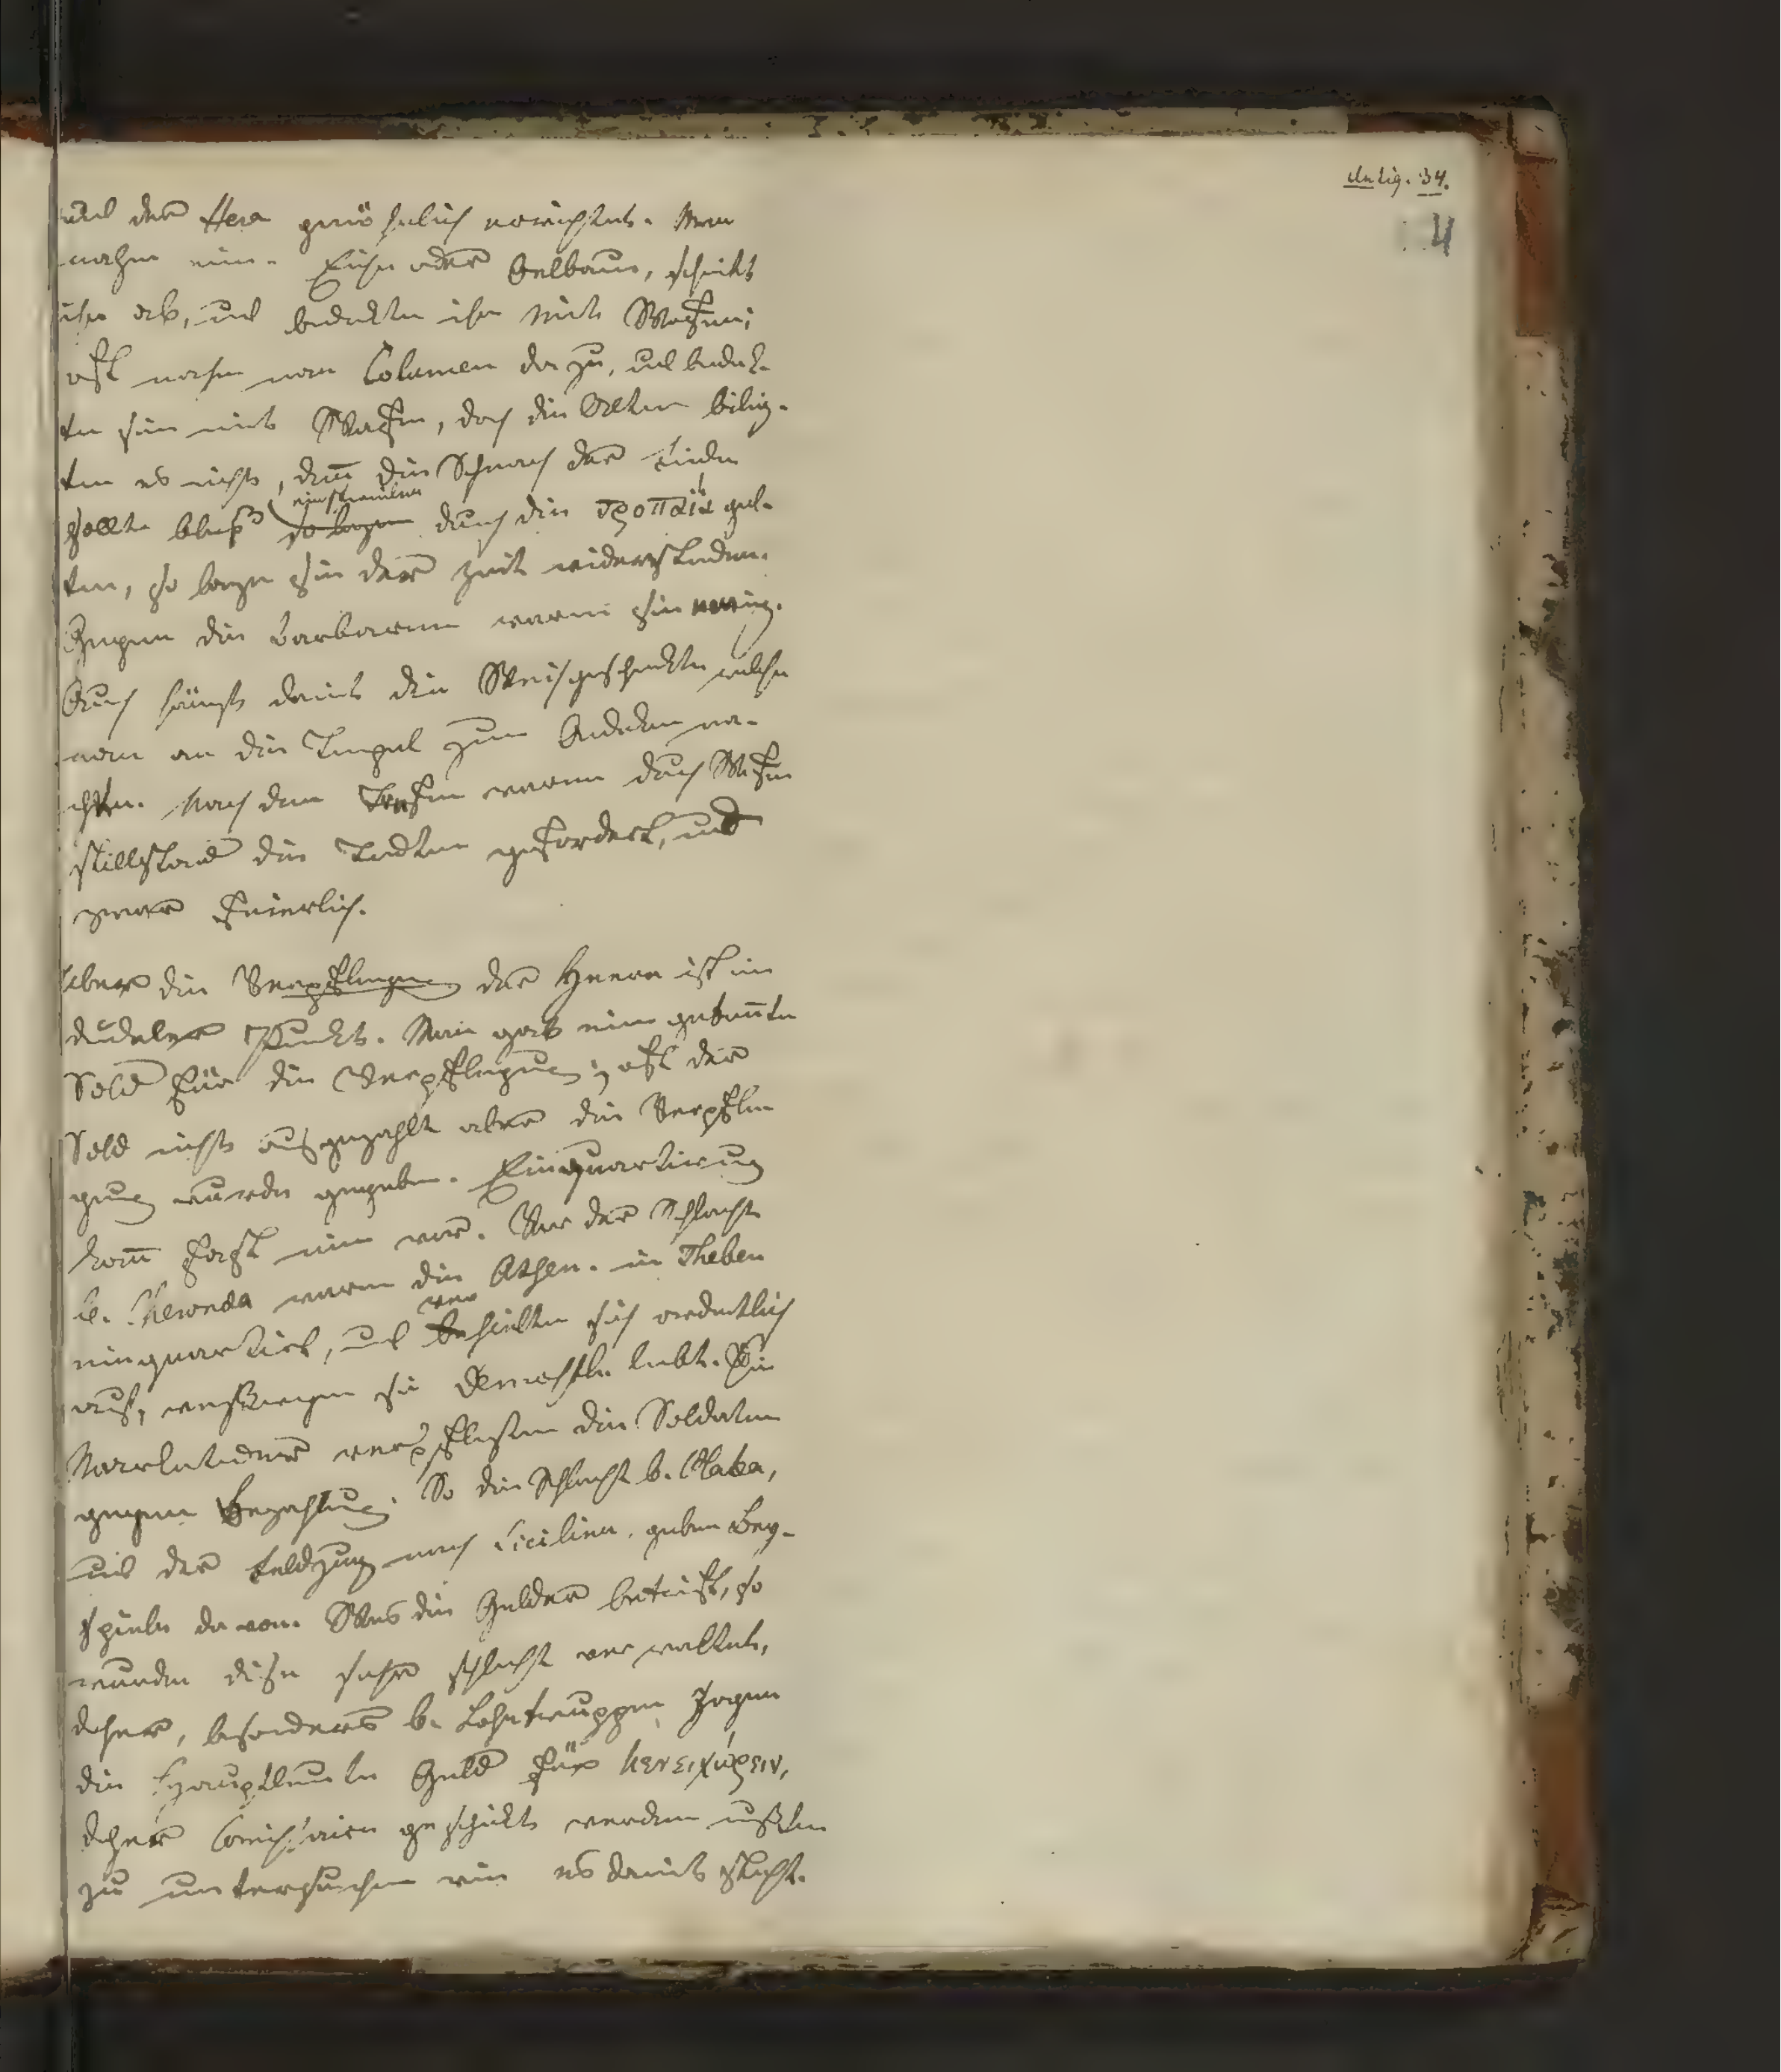 Antiq. 34.
4
und der Hera gewöhnlich errichtet. Man
nahm eine Eiche oder Oelbaum, schnitt
ihn ab, und bedeckten ihn mit Waffen;
oft nahm man Columen dazu, und bedek-
ten sie mit Waffen, doch die Alten billig-
ten es nicht, denn die Schmach der Feinde
sollte bloß einstweilen so lange durch die τροπαῖα gel-
ten, so lange sie der Zeit widerstanden.
Gegen die Barbaren waren sie ewig.
Auch hängt damit die Weihgeschenke welche
man an die Tempel zum Andeken ma-
chten. Nach dem Treffen waren durch Waffen
stillstand die Todten gefordert, und
zwar feierlich.
Über die Verpflegung der Heere ist ein
dunkler Punkt. Man gab eine
Sold für die Verpflegung; oft der
Sold nicht ausgezahlt aber die Verpfle
gung wurde gegeben. Einquartirung
kom̄ fast nie vor. Vor der Schlacht
b. waren die Athen. in Theben
einquartirt, und behielten ver sich ordentlich
auf, weßwegen sie Demosthe. lobt. Die
Marketender verpflegten die Soldaten
gegen Bezahlung. So die Schlacht b. Plataea,
und der Feldzug nach Sicilien geben Bey-
spiele davon. Was die Gelder betrift, so
wurden diese sehr schlecht verwaltet,
daher, besonders b. Lohntruppen zogen
die Hauptleute Geld für κενειχώρειν,
daher geschickt werden mußten
zu untersuchen wie es damit steht.